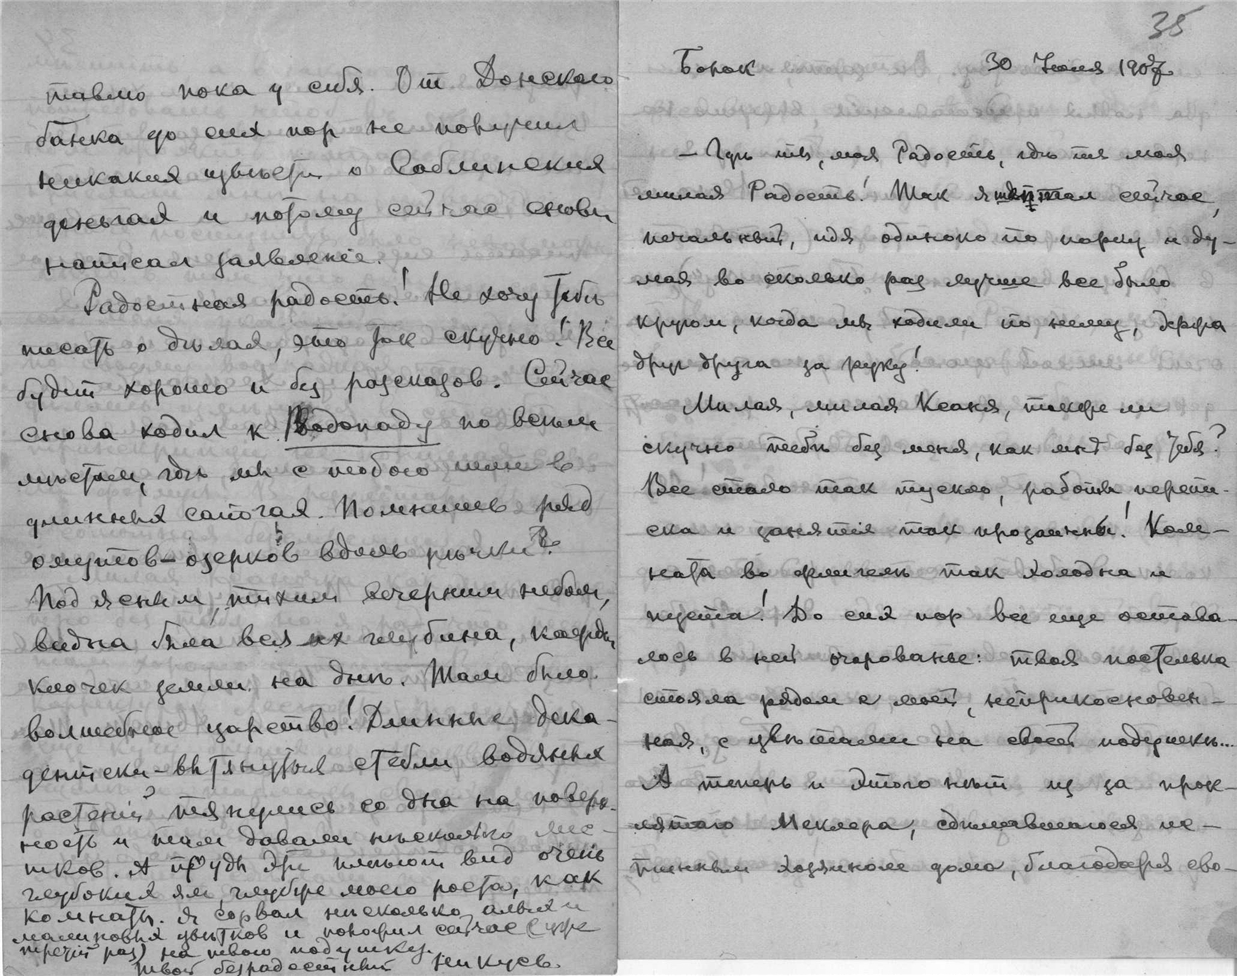 35
тавлю пока у себя. От Донского
банка до сих пор не получил
никаких извѣстій о Саблинских
деньгах и потому сейчас снова
написал заявленіе.
Радостная радость! Не хочу Тебѣ
писать о дѣлах, это так скучно! Все
будет хорошо и без разсказов. Сейчас
снова ходил к Водопаду по всѣм
мѣстам, гдѣ мы с тобою шли в
длинных сапогах. Помнишь ряд
омутов-озерков вдоль рѣчки?
Под ясным, тихим вечерним небом,
видна была вся их глубина, каждый
клочек земли на днѣ. Там было
волшебное царство! Длинные дека-
дентски-вытянутые стебли водяных
растеній тянулись со дна на поверх-
ность и там давали нѣсколько лис-
тков. А пруды эти имѣют вид очень
глубоких ям, глубже моего роста, как
комнаты. Я сорвал нѣсколько алых и
малиновых цвѣтков и положил сейчас (уже
третій раз) на твою подушку.
Твой безрадостный Никусь.
Борок 30 Іюля 1907
— Гдѣ ты, моя Радость, гдѣ ты моя
милая Радость! Так я шептал сейчас,
печальный, идя одиноко по парку и ду-
мая во сколько раз лучше все было
кругом, когда мы ходили по нему, держа
друг друга за руку!
Милая, милая Ксана, также ли
скучно тебѣ без меня, как мнѣ без Тебя?
Все стало так тускло, работы перепи-
ска и занятія так прозаичны! Ком-
ната во флигелѣ так холодна и
пуста! До сих пор все еще остава-
лось в ней очарованье: твоя постелька
стояла рядом с моей, неприкосновен-
ная, с цвѣтами на своей подушкѣ...
А теперь и этого нѣт из за прок-
лятого Меклера, сдѣлавшагося ис-
тинным хозяином дома, благодаря сво-